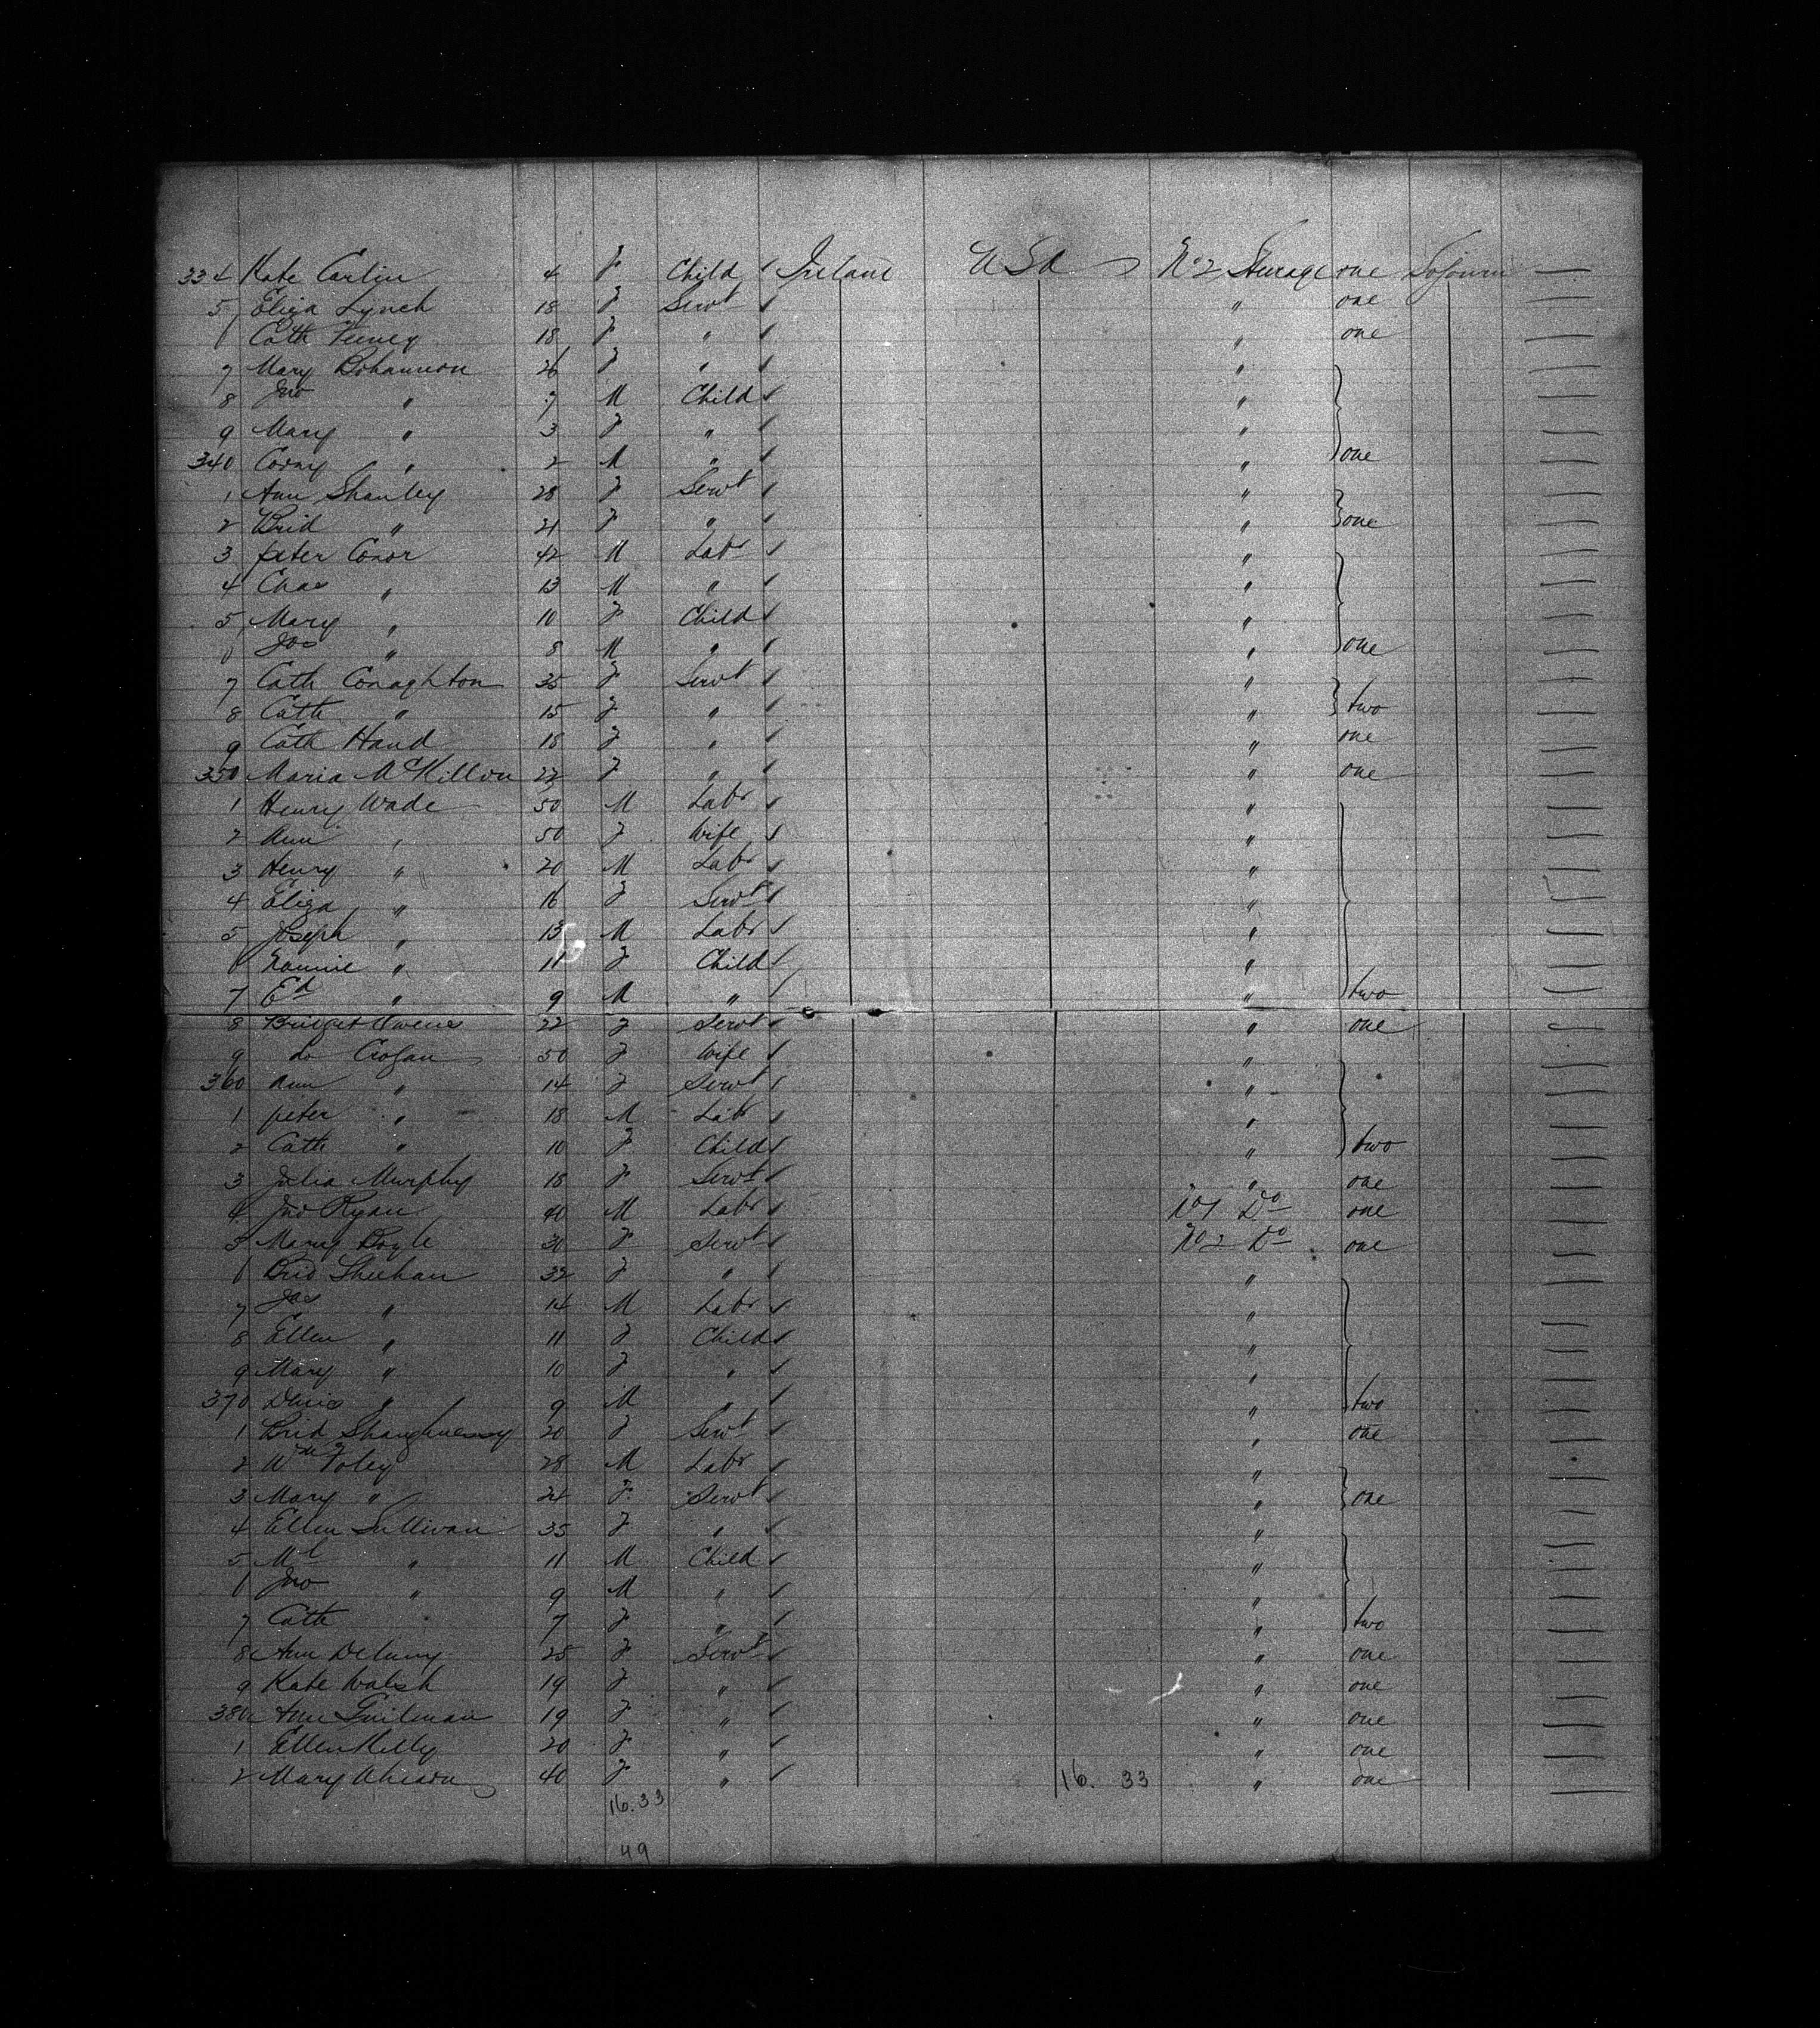 334 Kate Carlin 4 F Child Ireland U S A No 2 Steerage one Sojourn
5 Eliza Lynch 18 F Servt " one
6 Cath Feeney 18 F " " one
7 Mary Bohannon 26 F " "
8 Jno " 7 M Child "
9 Mary " 3 F " "
340 Corny " 2 M " " one
1 Ann Shanley 28 F Servt "
2 Brid " 21 F " " one
3 Peter Conor 42 M Labr "
4 Chas " 13 M " "
5 Mary " 10 F Child "
6 Jas " 8 M " " one
7 Cath Conaghton 35 F Servt "
8 Cath " 15 F " " two
9 Cath Hand 18 F " " one
350 Maria 22 F " " one
1 Henry Wade 50 M Labr "
2 Ann " 50 F Wife "
3 Henry " 20 M Labr "
4 Eliza " 16 F Servt "
5 Joseph " 13 M Labr "
6 " 11 F Child "
7 Ed " 9 M " " two
8 Bridget Owens 22 F Servt " one
9 do Crofan 50 F Wife "
360 Ann " 14 F Servt "
1 Peter " 18 M Labr "
2 Cath " 10 F Child " two
3 Julia Murphy 18 F Servt " one
4 Jno Ryan 40 M Labr No 1 Do one
5 Mary Boyle 30 F Servt No 2 Do one
6 Brid Sheehan 32 F " "
7 Jas " 14 M Labr "
8 Ellen " 11 F Child "
9 Mary " 10 F " "
370 Denis " 9 M " " two
1 Brid Shaughnessy 20 F Servt " one
2 Wm Foley 28 M Labr "
3 Mary " 24 F Servt " one
4 Ellen Sullivan 35 F " "
5 Ml " 11 M Child "
6 Jno " 9 M " "
7 Cath " 7 F " " two
8 Ann Delany 25 F Servt " one
9 Kate Walsh 19 F " " one
380 Ann 19 F " " one
1 Ellen Kelly 20 F " " one
2 Mary 40 F " 16. 33 " one
16.33
49